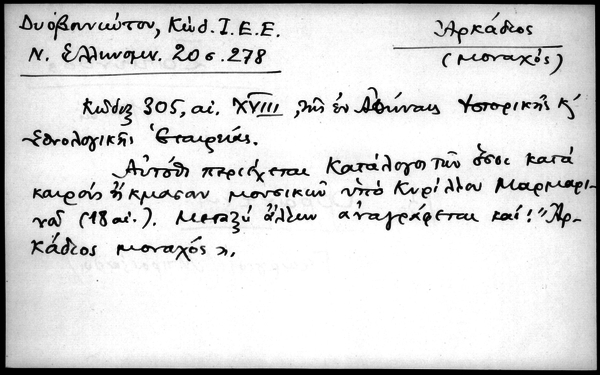 Δυοβουνιώτου, Κώδ. Ι.Ε.Ε.
Ν. Ἑλληνομν. 20 σ. 278
Ἀρκάδιος
(μοναχός)
Κῶδιξ 305, αἰ. XVIII, τῆς ἐν Ἀθήναις Ἱστορικῆς κ΄
Ἐθνολογικῆς Ἑταιρείας.
Αὐτόθι περιέχεται Κατάλογος τῶν ὅσοι κατά
καιρούς ἤκμασαν μουσικῶν ὑπό Κυρίλλου Μαρμαρι-
νοῦ (18 αἰ.). Μεταξύ ἄλλων ἀναγράφεται καί: "Ἀρ-
κάδιος μοναχός».